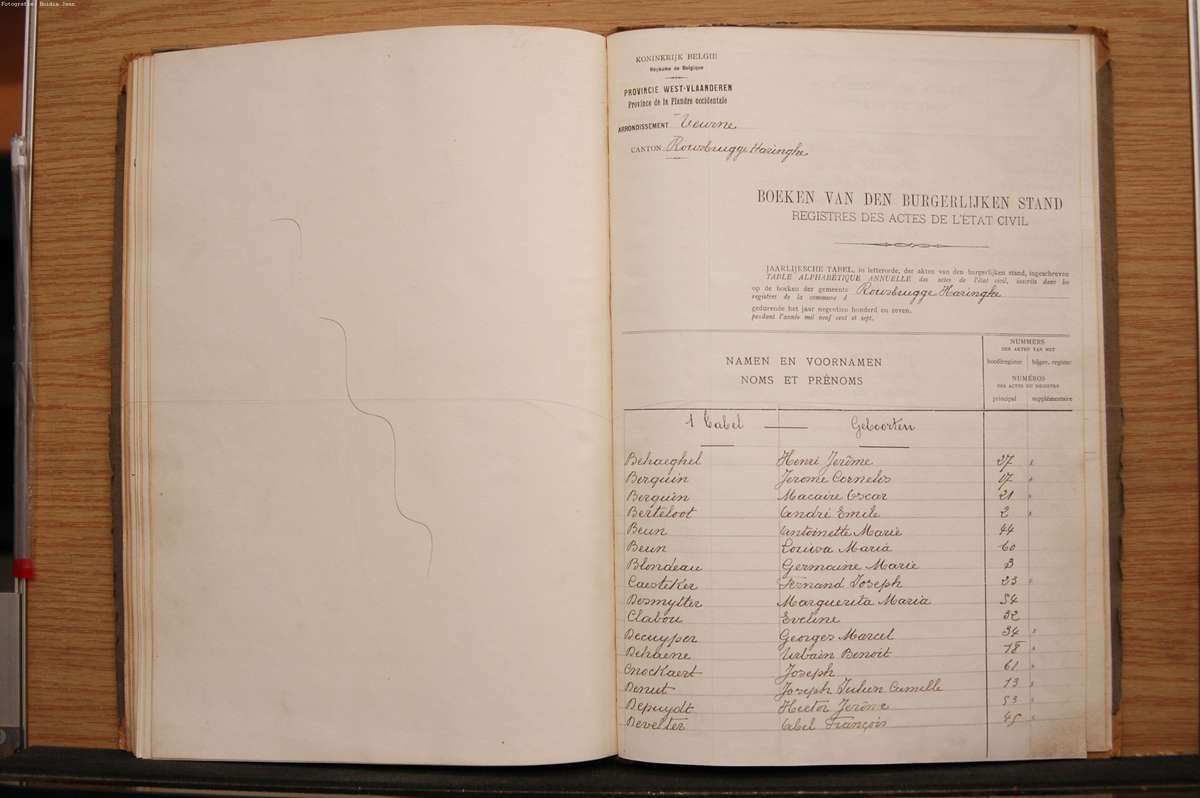 Fotografie: Buidin Jean
KONINKRIJK BELGIE
Royaume de Belgique
PROVINCIE WEST-VLAANDEREN
Province de la Flandre occidentale
ARRONDISSEMENT Veurne
CANTON Rousbrugge Haringhe
BOEKEN VAN DEN BURGERLIJKEN STAND
REGISTRES DES ACTES DE L'ÉTAT CIVIL
JAARLIJKSCHE TABEL, in letterorde, der akten van den burgerlijken stand, ingeschreven
TABLE ALPHABÉTIQUE ANNUELLE des actes de l'état civil, inscrits dans les
op de boeken der gemeente Rousbrugge Haringhe
registres de la commune d
gedurende het jaar negentien honderd en zeven.
pendant l'année mil neuf cent et sept.
NAMEN EN VOORNAMEN
NOMS ET PRÉNOMS
NUMMERS
DER AKTEN VAN HET
hoofdregister bijgev. register
NUMÉROS
DES ACTES DU REGISTRE
principal supplémentaire
1 Tabel — Geboorten
Behaeghel Henri Jerôme 37 "
Berquin Jerome Cornelis 17 "
Berquin Macaire Oscar 21 "
Berteloot André Emile 2 "
Beun Antoinette Marie 44
Beun Louisa Maria 60
Blondeau Germaine Marie 3
Caesteker Fernand Joseph 23 "
Desmytter Marguerita Maria 54
Clabou Eveline 32
Decuyper Georges Marcel 34 "
Dehaene Urbain Benoit 18 "
Cnockaert Joseph 61 "
Denut Joseph Julien Camille 13 "
Depuydt Hector Jerôme 53 "
Develter Abel François 45 "